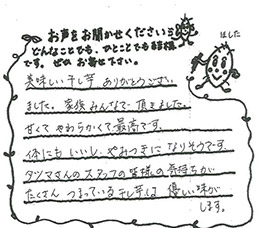 お声をお聞かせください
どんなことでも、ひとことでも結構
です。ぜひ お寄せ下さい。
はした
美味しい干し芋 ありがとうござい
ました。家族みんなで 頂きました。
甘くて やわらかくて最高です。
体にも いいし、やみつきに なりそうです。
タツマさんの スタッフの皆様の 気持ちが
たくさん つまっている干し芋は 優しい味が
します。